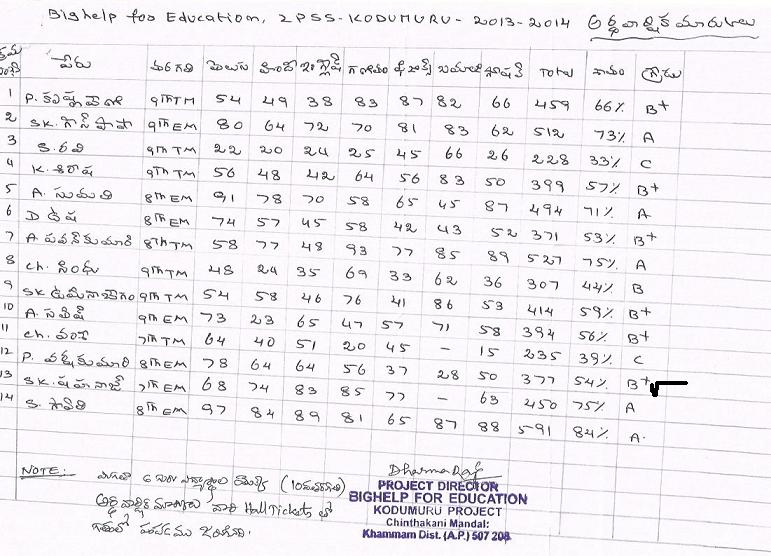 Bighelp for Education, ZPSS-KODUMURU- 2013-2014 అర్ధవార్షిక మార్కులు
క్రమ సంఖ్య పేరు తరగతి తెలుగు హిందీ ఇంగ్లీష్ గణితం TOTAL శాతం గ్రేడు
1 P. 9th TM 54 49 38 83 87 82 66 459 66% B+
2 SK. 9th EM 80 64 72 70 81 83 62 512 73% A
3 S. రవి 9th TM 22 20 24 25 45 66 26 228 33% C
4 K. శిరీష 9th TM 56 48 42 64 56 83 50 399 57% B+
5 A. సుమతి 8th EM 91 78 70 58 65 45 87 494 71% A
6 D ఉష 8th EM 74 57 45 58 42 43 52 371 53% B+
7 A. పవన్ కుమారి 8th TM 58 77 48 93 77 85 89 527 75% A
8 Ch. సింధు 9th TM 48 24 35 69 33 62 36 307 44% B
9 SK. 9th TM 54 58 46 76 41 86 53 414 59% B+
10 A. 9th EM 73 23 65 47 57 71 58 394 56% B+
11 Ch. 7th TM 64 40 51 20 45 - 15 235 39% C
12 P. 8th EM 78 64 64 56 37 28 50 377 54% B+
13 SK. షహనాజ్ 7th EM 68 74 83 85 77 - 63 450 75% A
14 S. 8th EM 97 84 89 81 65 87 88 591 84% A.
NOTE:- మిగతా 6 (10వ తరగతి)
అర్ధ వార్షిక మార్కులు వారి Hall Tickets తో
DharmaRaj
PROJECT DIRECTOR
BIGHELP FOR EDUCATION
KODUMURU PROJECT
Chinthakani Mandal:
Khammam Dist. (A.P.) 507 208